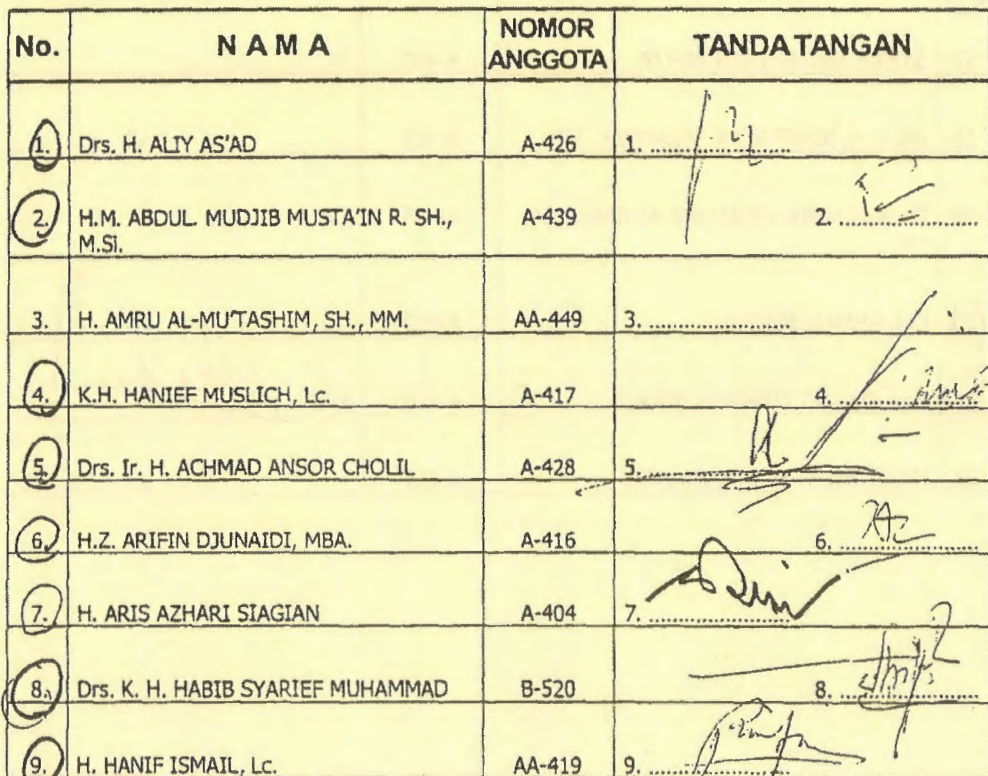 No. N A M A NOMOR ANGGOTA TANDA TANGAN
1. Drs. H. ALIY AS'AD A-426 1. ....................
2. H.M. ABDUL. MUDJIB MUSTA'IN R. SH., M.Si. A-439 2. ....................
3. H. AMRU AL-MU'TASHIM, SH., MM. AA-449 3. ....................
4. K.H. HANIEF MUSLICH, Lc. A-417 4. ....................
5. Drs. Ir. H. ACHMAD ANSOR CHOLIL A-428 5. ....................
6. H.Z. ARIFIN DJUNAIDI, MBA. A-416 6. ....................
7. H. ARIS AZHARI SIAGIAN A-404 7. ....................
8. Drs. K. H. HABIB SYARIEF MUHAMMAD B-520 8. ....................
9. H. HANIF ISMAIL, Lc. AA-419 9. ....................